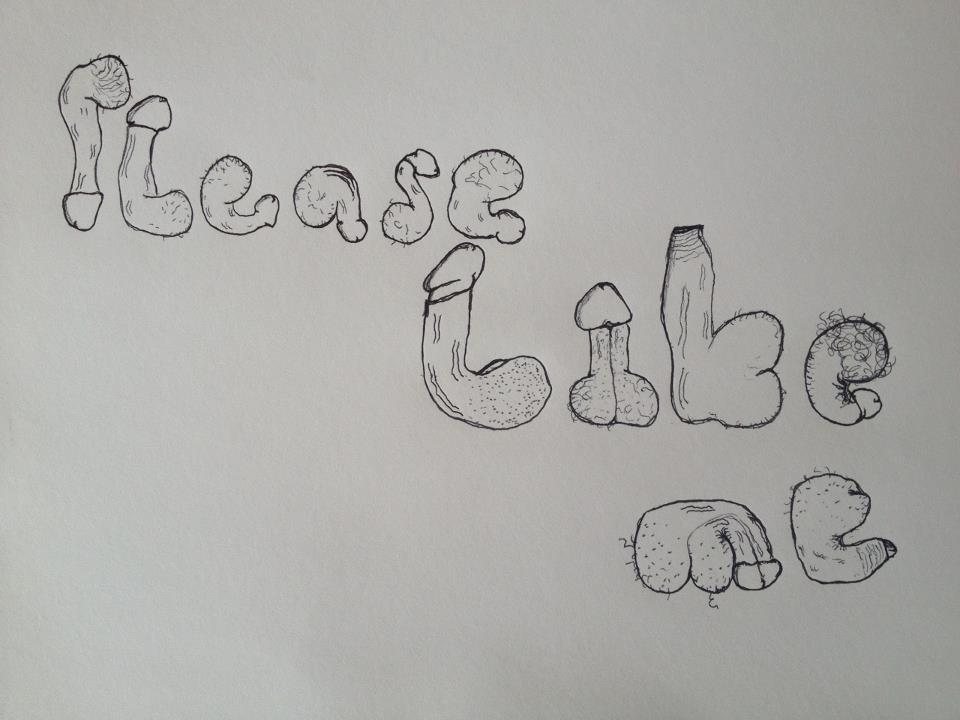 Please
Like
me